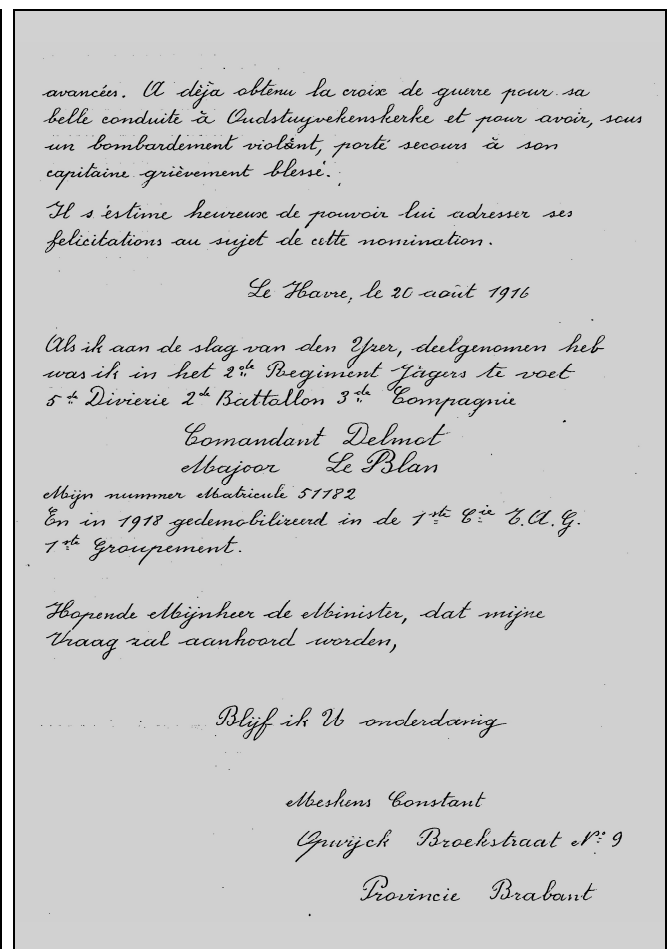 avancées. A dèja obtenu la croix de guerre pour sa
belle conduite à Oudstuyvekenskerke et pour avoir, sous
un bombardement violânt, porté secours à son
capitaine grièvement blessé.
Il s'éstime heureux de pouvoir lui adresser ses
felicitations au sujet de cette nomination.
Le Havre, le 20 août 1916
Als ik aan de slag van den Yzer, deelgenomen heb
was ik in het 2de Regiment Jägers te voet
5de Divierie 2de Battallon 3de Compagnie
Comandant Delmot
Majoor Le Blan
Mijn nummer Matricule 51182
En in 1918 gedemobilizeerd in de 1ste Cie T.A.G.
1ste Groupement.
Hopende Mijnheer de Minister, dat mijne
Vraag zal aanhoord worden,
Blijf ik U onderdanig
Meskens Constant
Opwijck Broekstraat No 9
Provincie Brabant